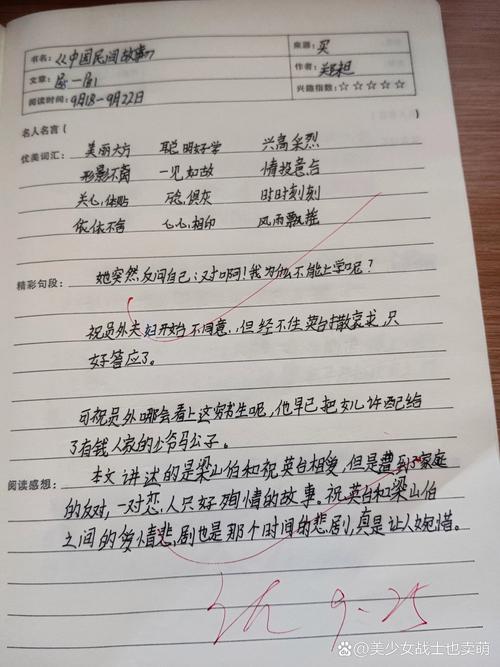 书名:《中国民间故事》
来源:买
文章:
作者:
阅读时间:9月18—9月22日
兴趣指数:☆☆☆☆☆
名人名言(
优美词汇: 美丽大方 聪明好学 兴高采烈
形影不离 一见如故 情投意合
关心体贴 俱灰 时时刻刻
依依不舍 心心相印 风雨飘摇
精彩句段: 她突然反问自己:对啊!我为什么不能上学呢?
祝员外夫妇开始不同意,但经不住英台撒哀求,只
好答应了。
可祝员外哪会看上这穷书生呢,他早已把女儿许配给
了有钱人家的少爷马公子。
阅读感想: 本文讲述的是梁山伯和祝英台相爱,但是遭到了家庭
的反对,一对恋人只好殉情的故事。祝英台和梁山伯
之间的爱情悲剧也是那个时间的悲剧,真是让人惋惜。
9-25
@美少女战士也卖萌